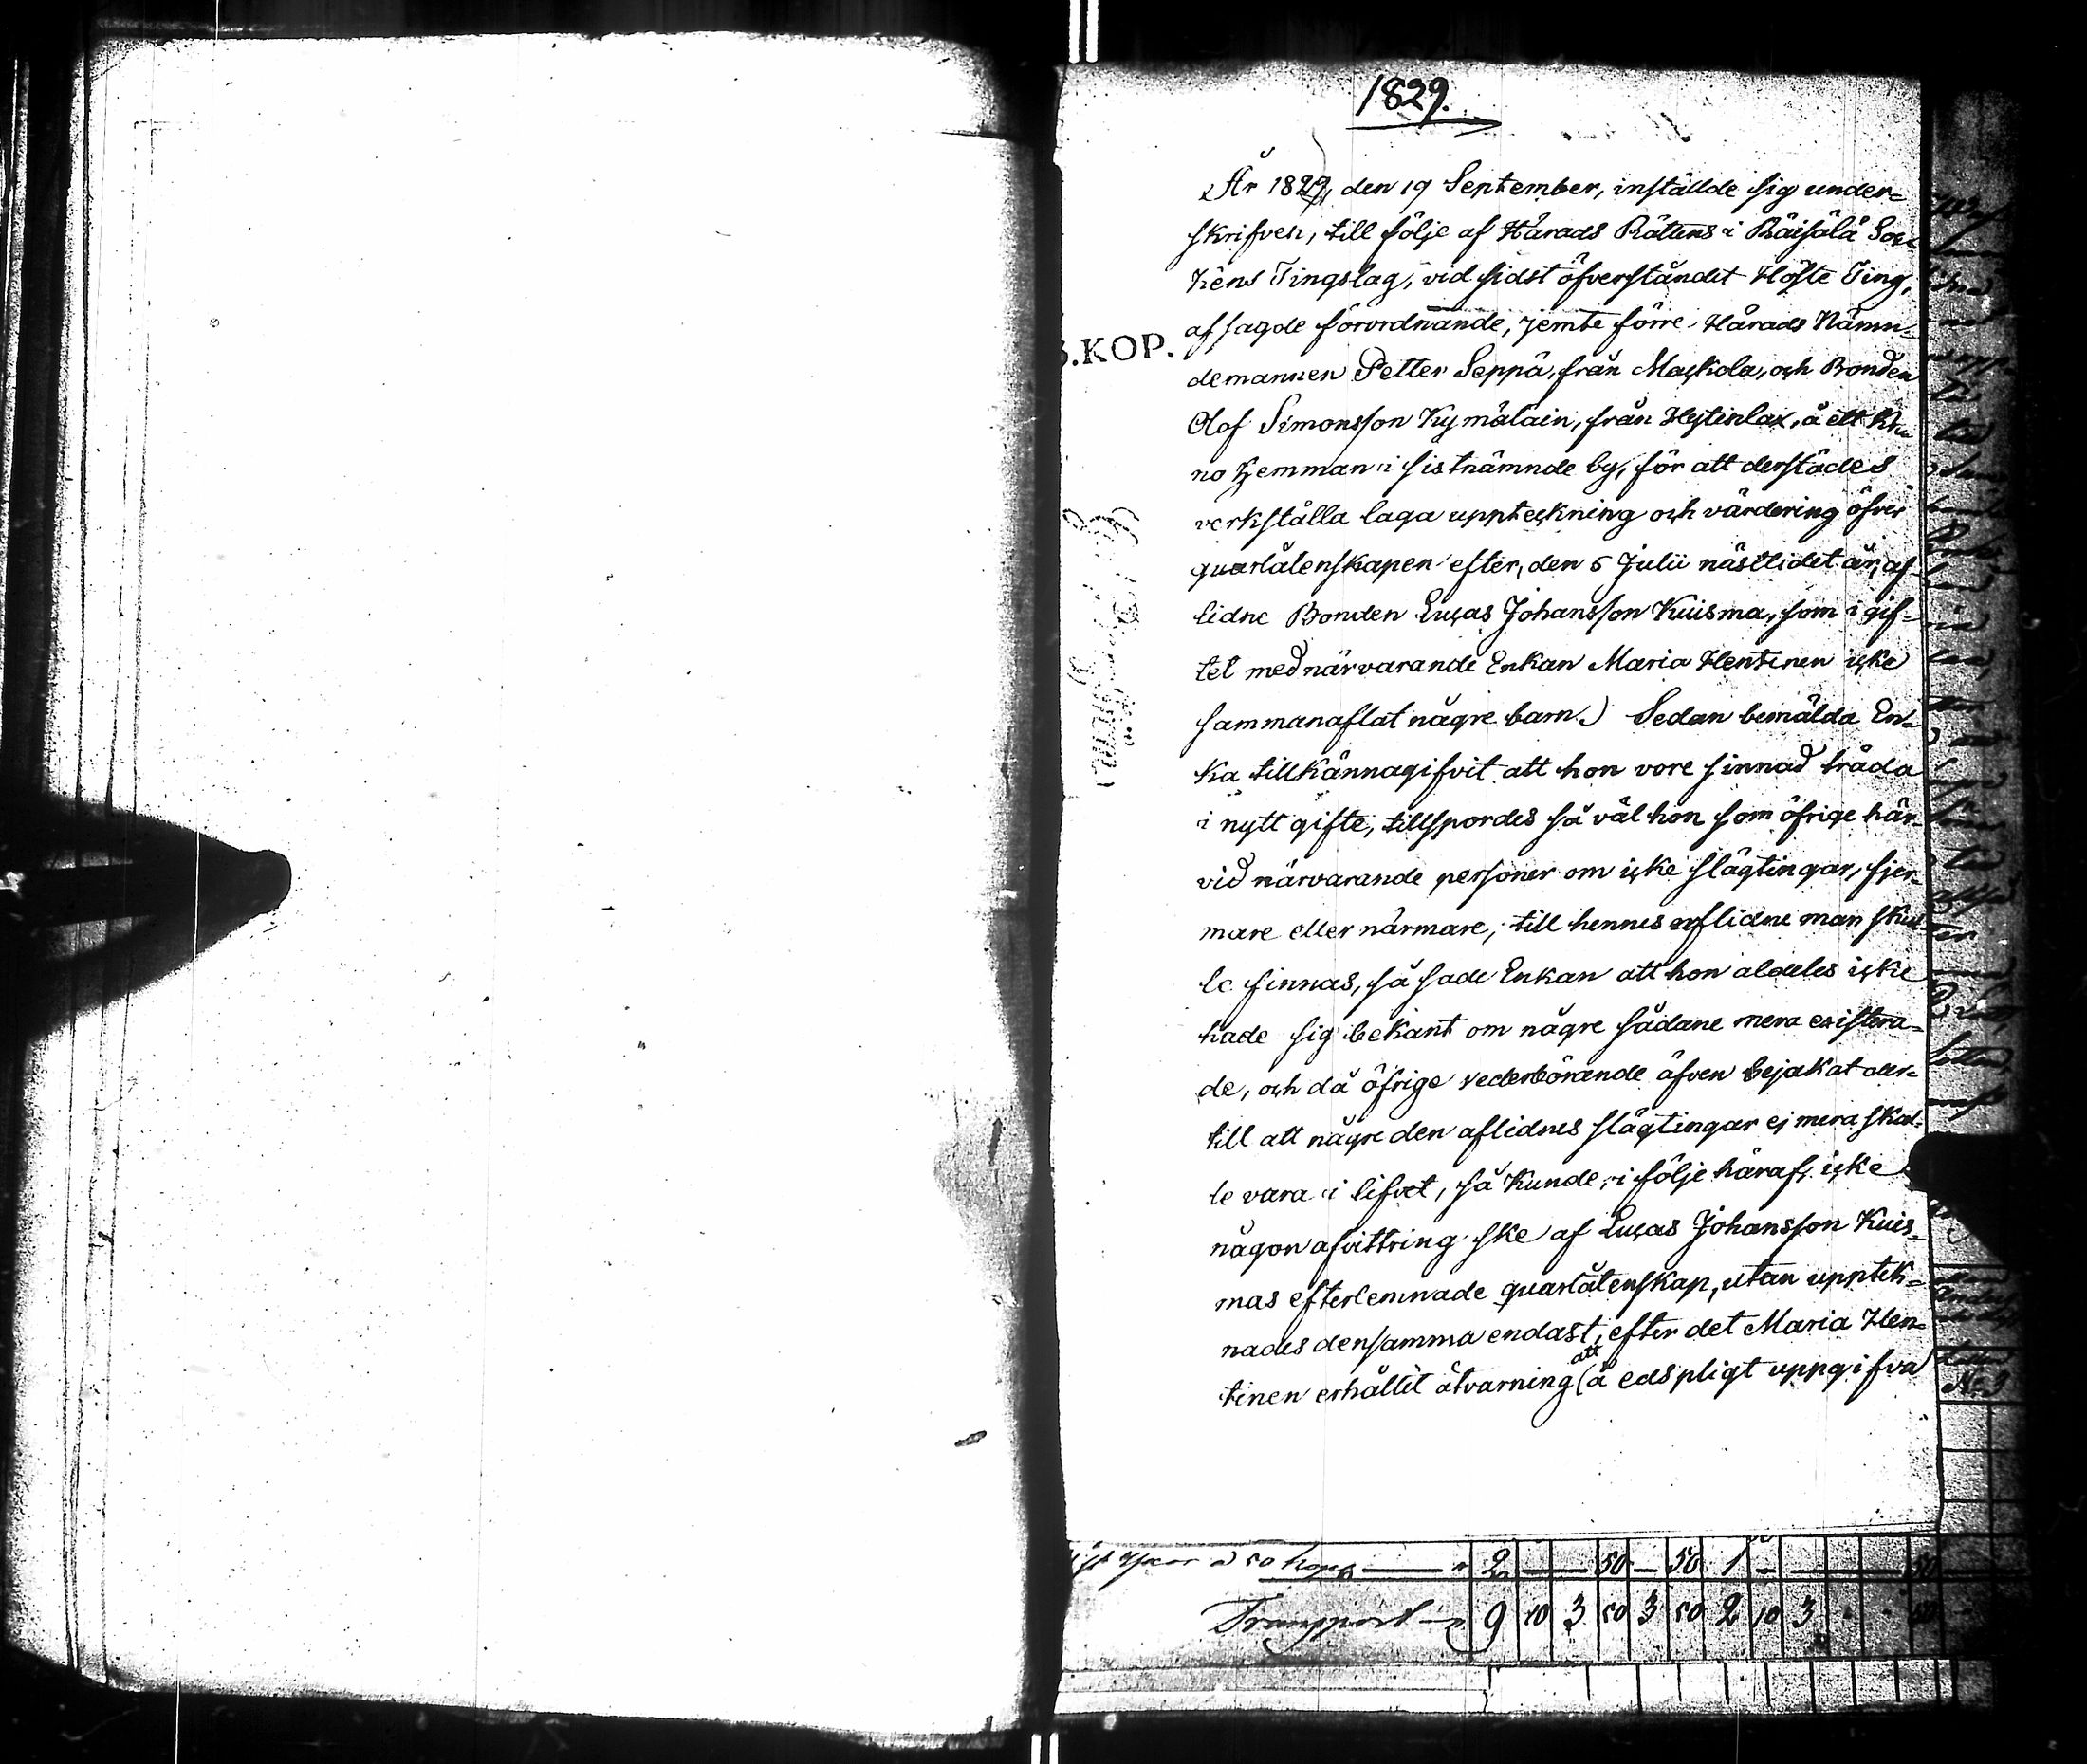 1829.
År 1829, den 19 September, inställde sig under-
skrifven, till följe af Härads Rättens i Räisälä Soc-
kens Tingslag, vid sidst öfverståndet Höste Ting,
afsagde förordnande, jemte förre Härads Nämn-
B.KOP.
demannen Petter Seppä, från Mackola, och Bonden
Olof Simonsson Kymäläin, från Hytinlax, å ett Kro-
no Hemman i sistnämnde by, för att derstädes
verkställa laga uppteckning och värdering öfver
quarlåtenskapen efter, den 5 Julii nästlidet år, af-
lidne Bonden Lucas Johansson Kuisma, som i gif-
tet med närvarande Enkan Maria Hentinen icke
sammanaflat någre barn. Sedan bemälda En-
ka tillkännagifvit att hon vore sinnad träda
i nytt gifte, tillspordes så väl hon som öfrige här-
vid närvarande personer om icke slägtingar, fjer-
mare eller närmare, till hennes aflidne man skul-
le finnas, så sade Enkan att hon aldeles icke
hade sig bekant om någre sådane mera existera-
de, och då öfrige vederbörande äfven bejakat der-
till att någre den aflidnes slägtingar ej mera skul-
le vara i lifvet, så kunde, i följe häraf, icke
någon afvittring ske af Lucas Johansson Kuis-
mas efterlemnade quarlåtenskap, utan upptek-
nades densamma endast, efter det Maria Hen-
tinen erhållit åtvarning att å edspligt uppgifva
à 50 kop 2 — 50 — 50 1 — 50
Transport 9 10 3 50 3 50 2 10 3 50